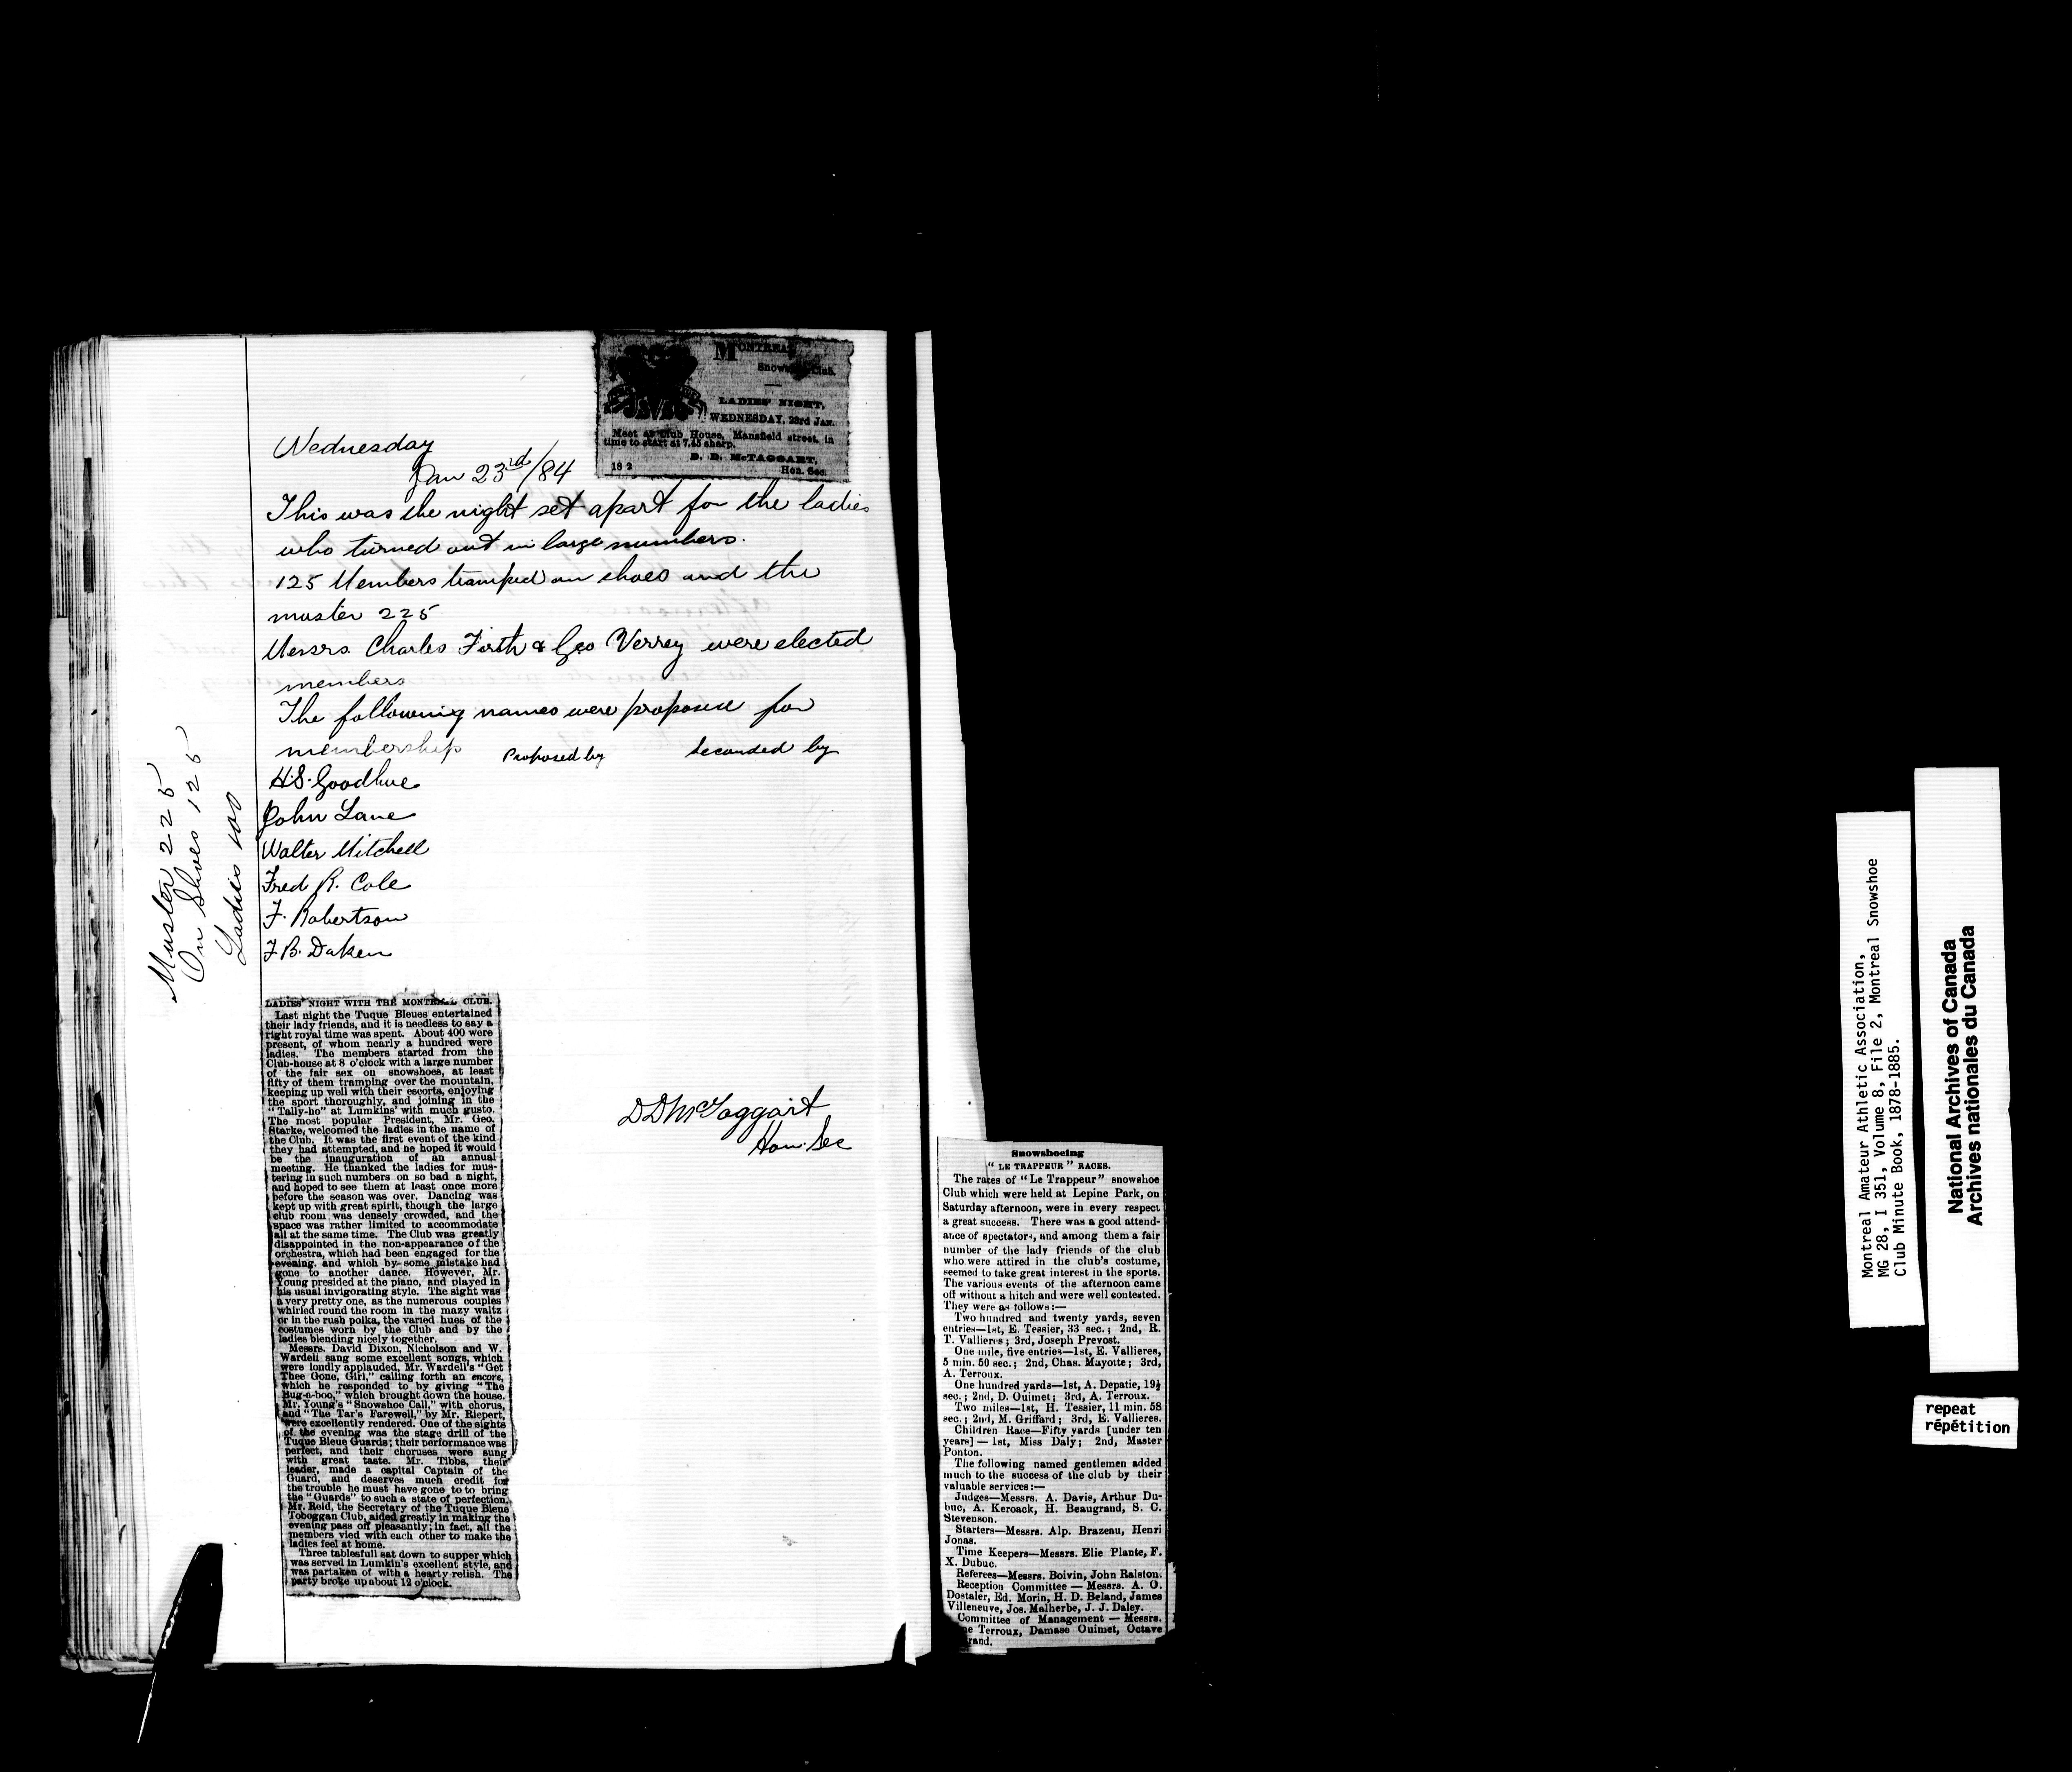 MONTREAL
Snowshoe Club.
LADIES' NIGHT,
WEDNESDAY, 23rd JAN.
Meet at Club House, Mansfield street, in
time to start at 7.45 sharp.
D. D. McTAGGART,
18 2 Hon. Sec.
Wednesday
Jan 23rd/84
This was the night set apart for the ladies
who turned out in large numbers.
125 Members tramped on shoes and the
muster 225
Messrs Charles Firth & Geo Verrey were elected
members
The following names were proposed for
membership Proposed by Seconded by
H.S. Goodhue
John Lane
Walter Mitchell
Fred R. Cole
F. Robertson
F B. Daken
Muster 225
On Shoes 125
Ladies 100
LADIES' NIGHT WITH THE MONTREAL CLUB.
Last night the Tuque Bleues entertained
their lady friends, and it is needless to say a
right royal time was spent. About 400 were
present, of whom nearly a hundred were
ladies. The members started from the
Club-house at 8 o'clock with a large number
of the fair sex on snowshoes, at least
fifty of them tramping over the mountain,
keeping up well with their escorts, enjoying
the sport thoroughly, and joining in the
"Tally-ho" at Lumkins' with much gusto.
The most popular President, Mr. Geo.
Starke, welcomed the ladies in the name of
the Club. It was the first event of the kind
they had attempted, and he hoped it would
be the inauguration of an annual
meeting. He thanked the ladies for mus-
tering in such numbers on so bad a night,
and hoped to see them at least once more
before the season was over. Dancing was
kept up with great spirit, though the large
club room was densely crowded, and the
space was rather limited to accommodate
all at the same time. The Club was greatly
disappointed in the non-appearance of the
orchestra, which had been engaged for the
evening, and which by some mistake had
gone to another dance. However, Mr.
Young presided at the piano, and played in
his usual invigorating style. The sight was
a very pretty one, as the numerous couples
whirled round the room in the mazy waltz
or in the rush polka, the varied hues of the
costumes worn by the Club and by the
ladies blending nicely together.
Messrs. David Dixon, Nicholson and W.
Wardell sang some excellent songs, which
were loudly applauded, Mr. Wardell's "Get
Thee Gone, Girl," calling forth an encore,
which he responded to by giving "The
Bug-a-boo," which brought down the house.
Mr. Young's "Snowshoe Call," with chorus,
and "The Tar's Farewell," by Mr. Riepert,
were excellently rendered. One of the sights
of the evening was the stage drill of the
Tuque Bleue Guards; their performance was
perfect, and their choruses were sung
with great taste. Mr. Tibbs, their
leader, made a capital Captain of the
Guard, and deserves much credit for
the trouble he must have gone to to bring
the "Guards" to such a state of perfection.
Mr. Reid, the Secretary of the Tuque Bleue
Toboggan Club, aided greatly in making the
evening pass off pleasantly; in fact, all the
members vied with each other to make the
ladies feel at home.
Three tablesfull sat down to supper which
was served in Lumkin's excellent style, and
was partaken of with a hearty relish. The
party broke up about 12 o'clock.
DD McTaggart
Hon. Sec
Snowshoeing
"LE TRAPPEUR" RACES.
The races of "Le Trappeur" snowshoe
Club which were held at Lepine Park, on
Saturday afternoon, were in every respect
a great success. There was a good attend-
ance of spectators, and among them a fair
number of the lady friends of the club
who were attired in the club's costume,
seemed to take great interest in the sports.
The various events of the afternoon came
off without a hitch and were well contested.
They were as follows:—
Two hundred and twenty yards, seven
entries—1st, E. Tessier, 33 sec.; 2nd, R.
T. Vallieres; 3rd, Joseph Prevost.
One mile, five entries—1st, E. Vallieres,
5 min. 50 sec.; 2nd, Chas. Mayotte; 3rd,
A. Terroux.
One hundred yards—1st, A. Depatie, 19½
sec.; 2nd, D. Ouimet; 3rd, A. Terroux.
Two miles—1st, H. Tessier, 11 min. 58
sec.; 2nd, M. Griffard; 3rd, E. Vallieres.
Children Race—Fifty yards [under ten
years]—1st, Miss Daly; 2nd, Master
Ponton.
The following named gentlemen added
much to the success of the club by their
valuable services:—
Judges—Messrs. A. Davis, Arthur Du-
buc, A. Keroack, H. Beaugrand, S. C.
Stevenson.
Starters—Messrs. Alp. Brazeau, Henri
Jonas.
Time Keepers—Messrs. Elie Plante, F.
X. Dubuc.
Referees—Messrs. Boivin, John Ralston.
Reception Committee — Messrs. A. O.
Dostaler, Ed. Morin, H. D. Beland, James
Villeneuve, Jos. Malherbe, J. J. Daley.
Committee of Management — Messrs.
Terroux, Damase Ouimet, Octave
Montreal Amateur Athletic Association,
MG 28, I 351, Volume 8, File 2, Montreal Snowshoe
Club Minute Book, 1878-1885.
National Archives of Canada
Archives nationales du Canada
repeat
répétition